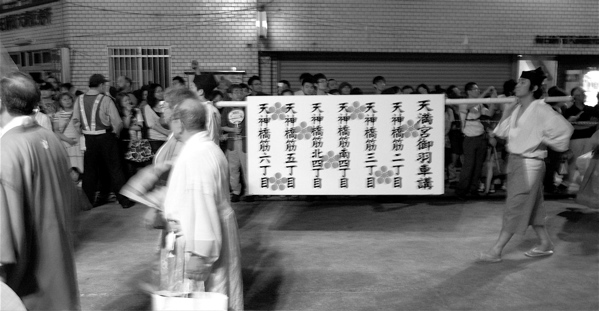 天満宮御羽車講
天神橋筋二丁目
天神橋筋三丁目
天神橋筋南四丁目
天神橋筋北四丁目
天神橋筋五丁目
天神橋筋六丁目